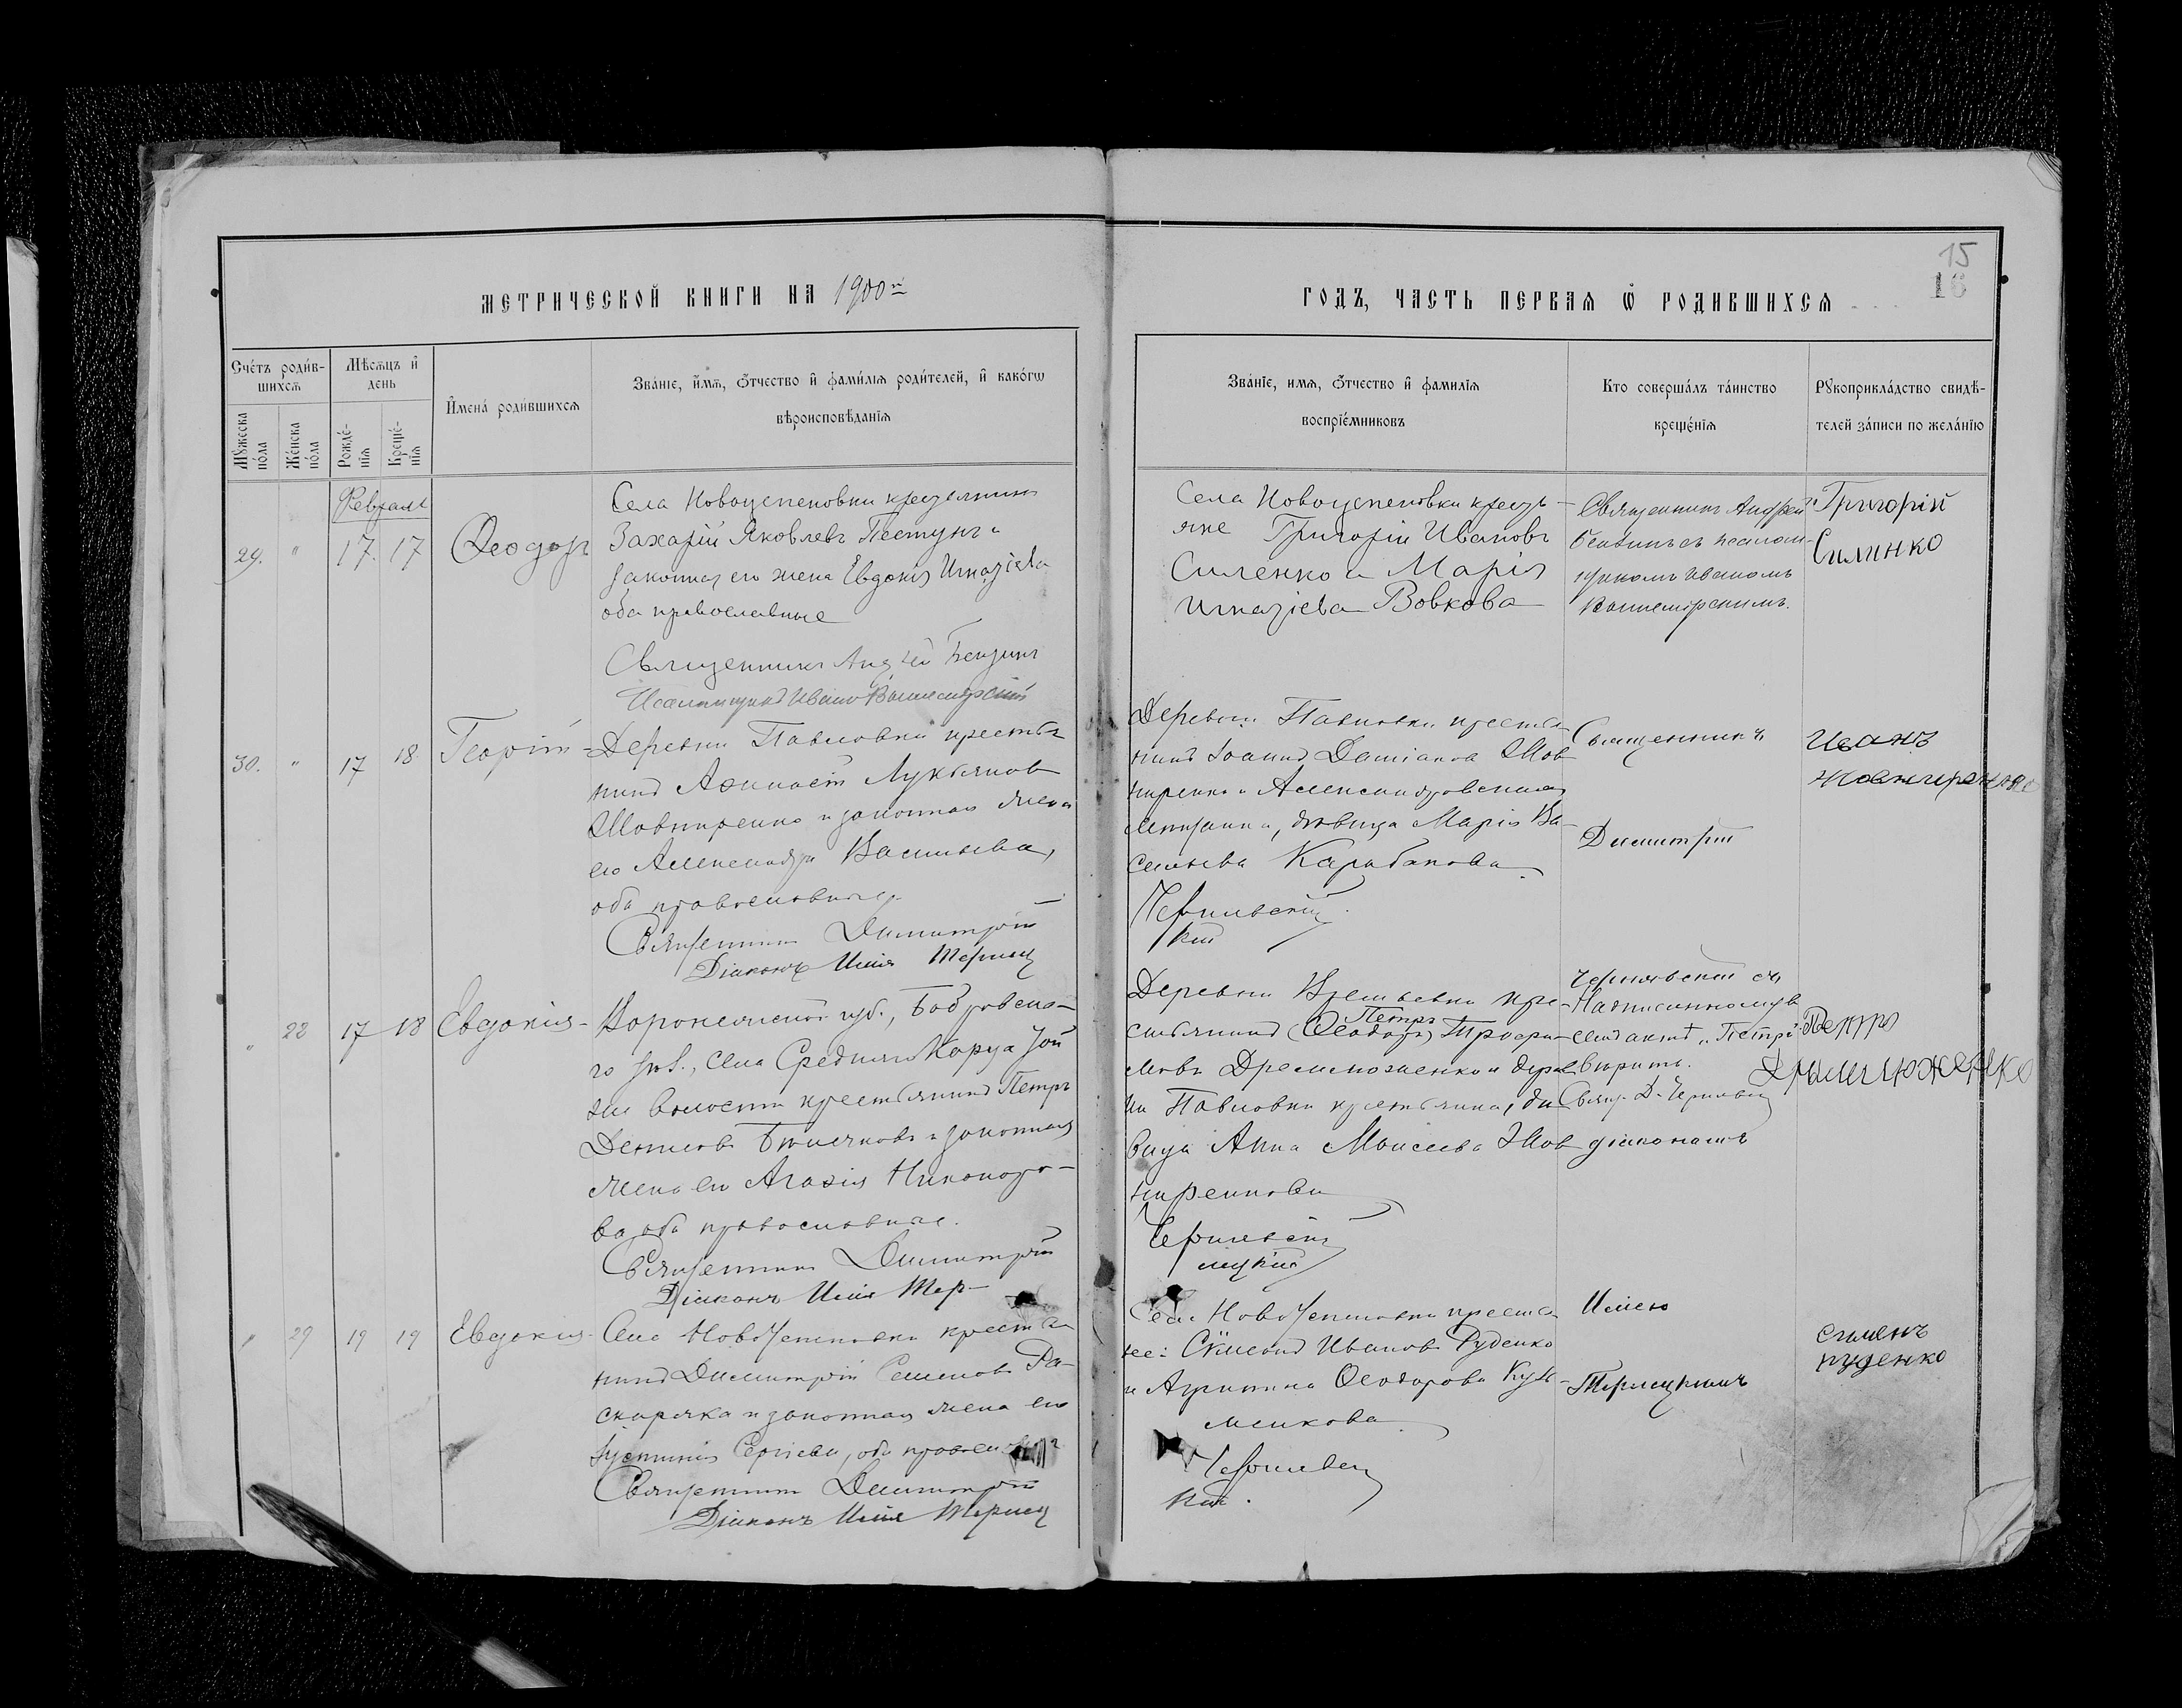 15
16
МЕТРИЧЕСКОЙ КНИГИ НА 1900й
ГОДЪ, ЧАСТЬ ПЕРВАѦ Ѡ РОДИВШИХСѦ
Счетъ родив-
шихсѧ
Мѣсѧцъ и
день
Имена родившихсѧ
Званіе, имѧ, отчество и фамиліѧ родителей, и какогѡ
вѣроисповѣданіѧ
Мужеска
пола
Женска
пола
Рожде-
ніѧ
Креще-
ніѧ
Званіе, имѧ, отчество и фамиліѧ
воспріемниковъ
Кто совершалъ таинство
крещеніѧ
Рукоприкладство свидѣ-
телей записи по желанію
Февраля
29. " 17. 17 Ѳеодоръ
Села Новоуспеновки крестьянинъ
Захарій Яковлевъ Пестунъ и
законная его жена Евдокія Игнатіева
оба православные
Священникъ Андрей
Псаломщикъ Иванъ
Села Новоуспеновки кресть-
яне Григорій Ивановъ
Силенко и Марія
Игнатіева Вовкова
Священникъ Андрей
съ псалом-
щикомъ Иваномъ
Григорій
Силинко
30. " 17 18 Георгій
Деревни Павловки крестья
нинъ Аѳанасій Лукьяновъ
Жовниренко и законная жена
его Александра Васильева,
оба православные.
Священникъ Димитрій
Діаконъ Илія Терлец
Деревни Павловки крестья
нинъ Іоаннъ Даміановъ Жов
ниренко и Александровская
мещанка, дѣвица Марія Ва-
сильева Карабанова
Чернявскій
кій
Священникъ
Димитрій
Иванъ
Жовниренко
" 28 17 18 Евдокія
Воронежской губ., Бобровска-
го уѣз., села Средняго Карачана
волости крестьянинъ Петръ
Денисовъ и законная
жена его Агаѳія Никаноро-
ва, оба православные.
Священникъ Димитрій
Діаконъ Илія Тер-
Деревни кре-
Петръ
стьянинъ (Ѳеодоръ) Троѳи-
мовъ Дремлюженко и дерев
ни Павловки крестьянка, дѣ
вица Анна Моисеева Жов
ниренкова
Чернявскій
лецкій
Чернявскій съ
Надписанному
"Петръ"
вѣрить.
Свящ. Д. Чернявскій
діакономъ
Петръ
Дрымлюженко
" 29 19 19 Евдокія
Села Новоуспеновки крестья
нинъ Димитрій Семеновъ Ра-
скаряка и законная жена его
Іустинія Сергіева, оба правосл
Священникъ Димитрій
Діаконъ Илія Терлец
Села Новоуспеновки крестья
не: Сѵмеонъ Ивановъ Руденко
и Агрипина Ѳеодорова Кузь-
менкова
Чернявскій
кій.
Иліею
Терлецкимъ
Семенъ
Руденко